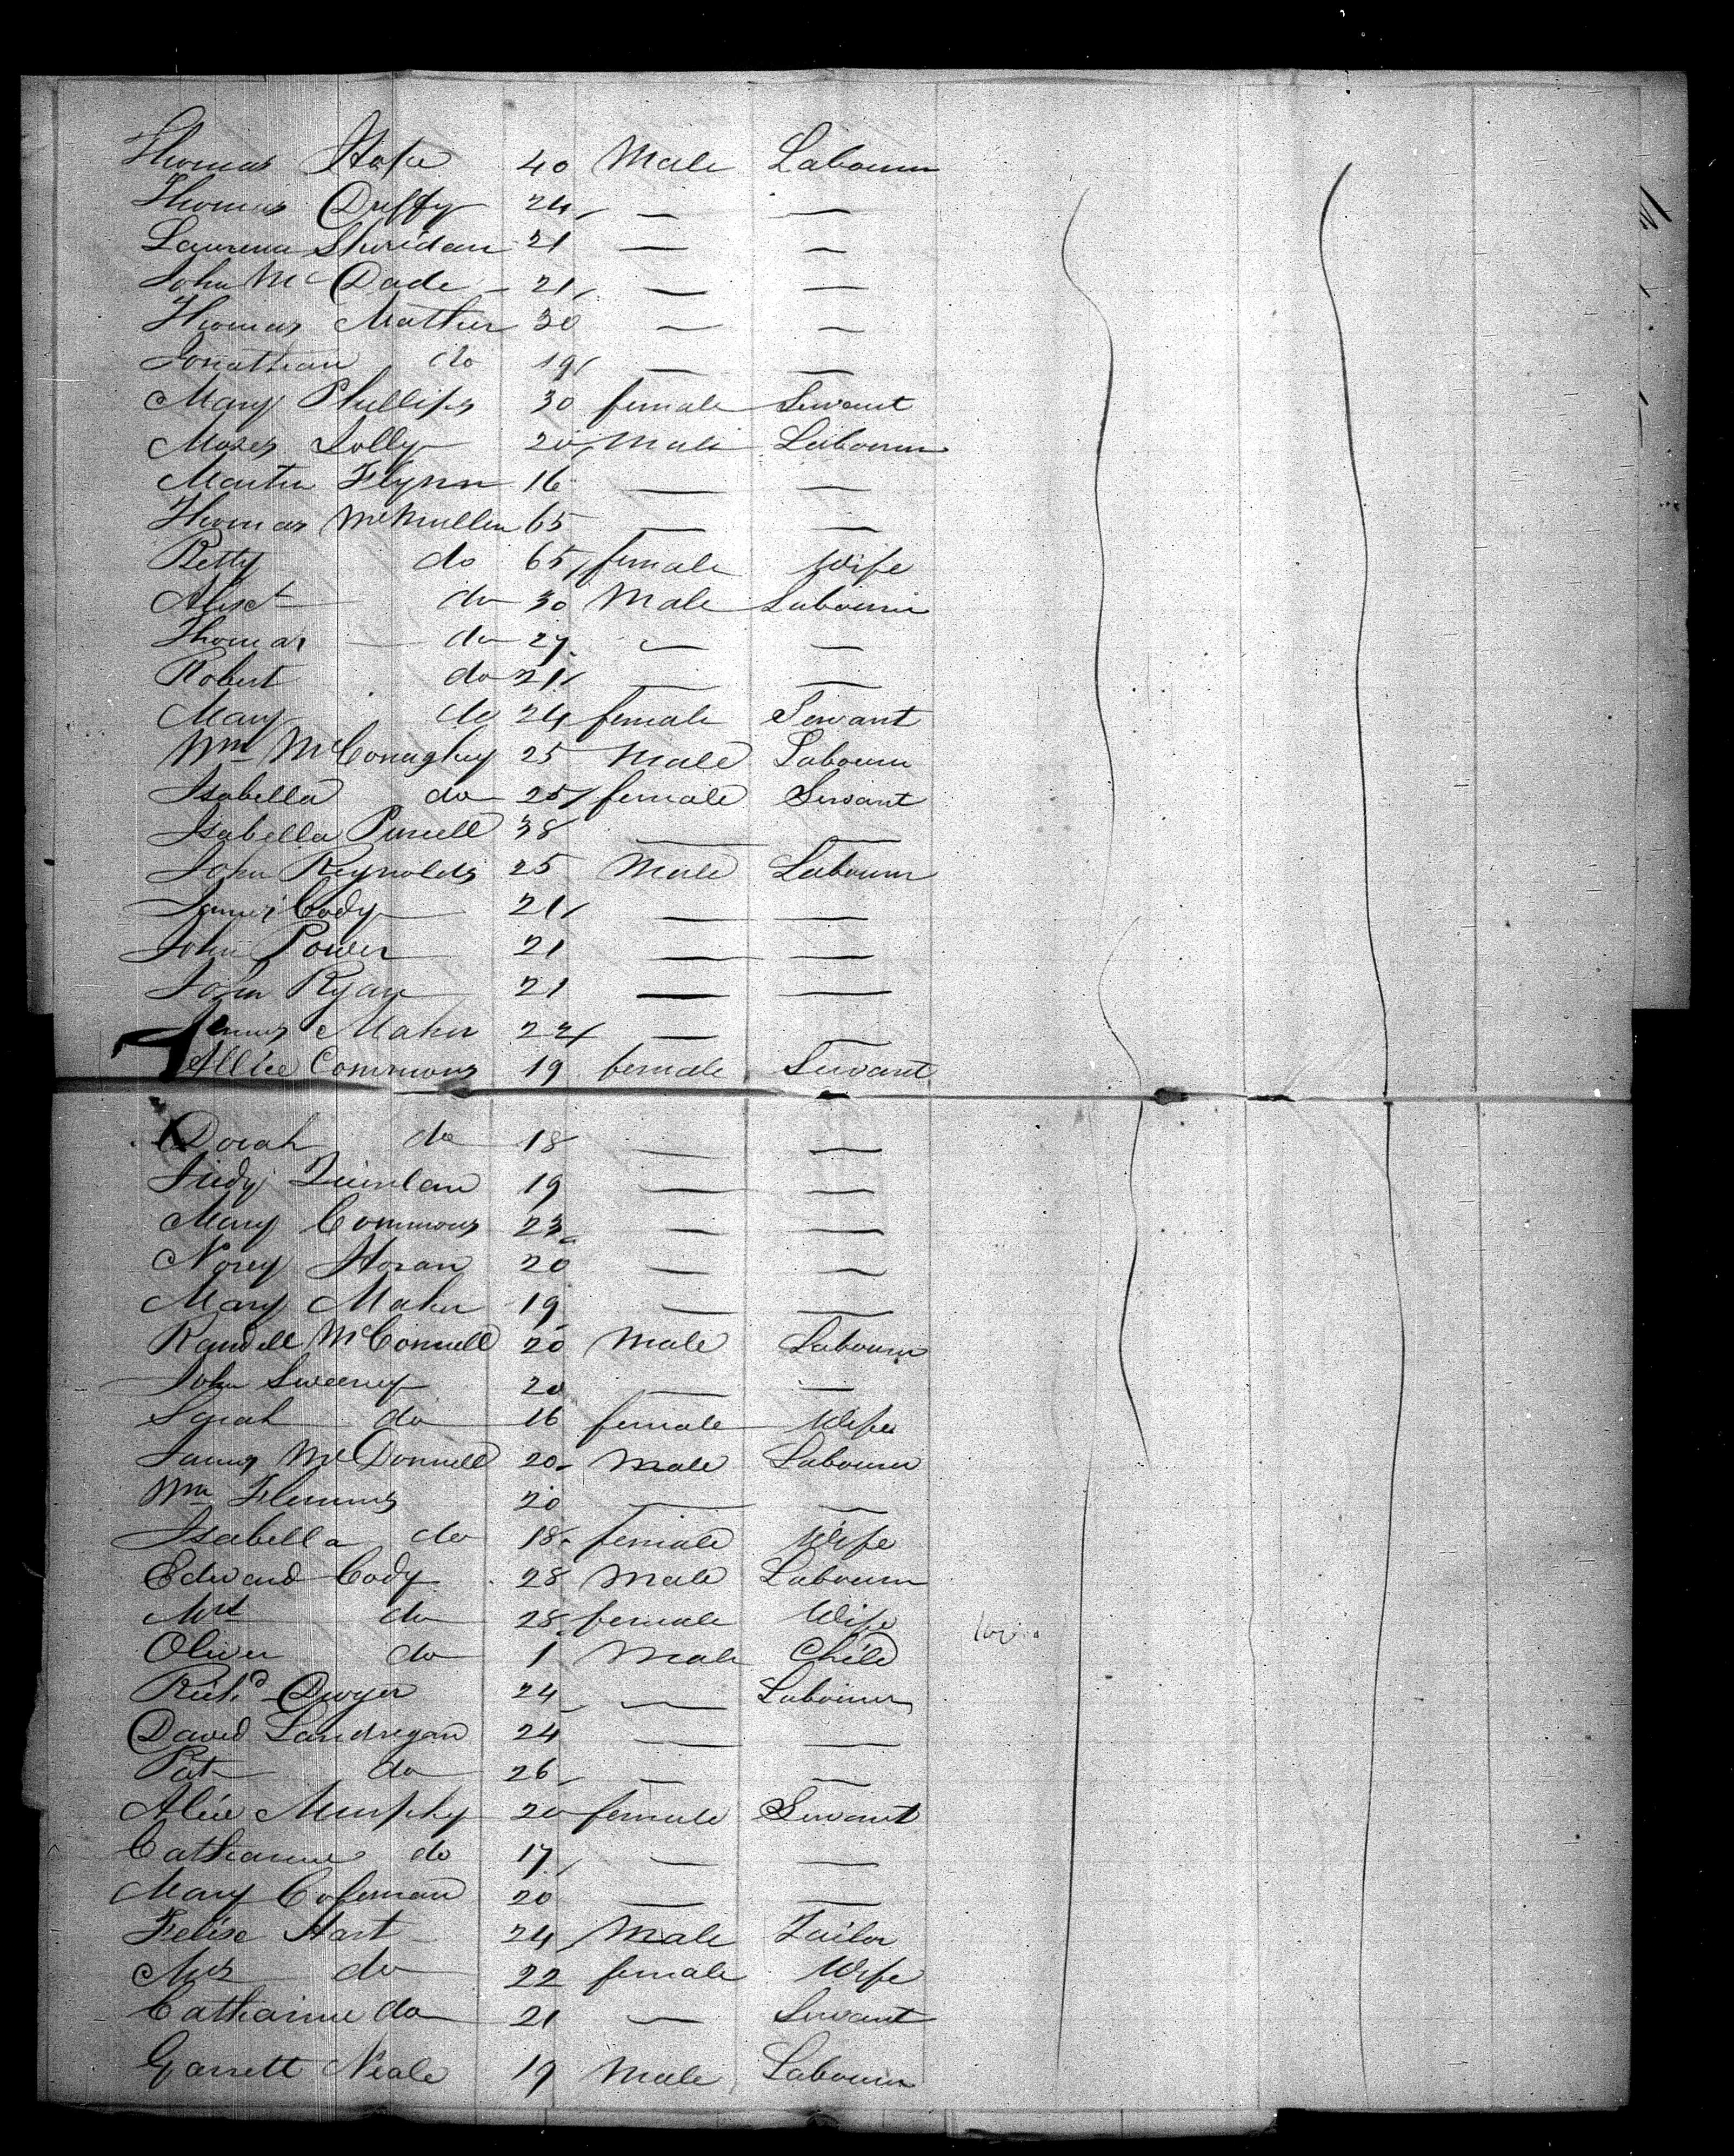 Thomas Hope 40 Male Labourer
Thomas Duffy 24 — —
Laurence Sheridan 21 — —
John McDade 21 — —
Thomas Mather 30 — —
Jonathan do 19 — —
Mary Phillips 30 female Servant
Moses Jolly 20 Male Labourer
Martin Flynn 16 — —
Thomas McMullen 65 — —
Betty do 65 female Wife
Alexr do 30 Male Labourer
Thomas do 27 — —
Robert do 21 — —
Mary do 24 female Servant
Wm McConaghy 25 Male Labourer
Isabella do 25 female Servant
Isabella Purcell 38 — —
John Reynolds 25 Male Labourer
James Cody 21 — —
John Power 21 — —
John Ryan 21 — —
James Maher 22 — —
Allice Commons 19 female Servant
Dorah do 18 — —
Judy Quinlan 19 — —
Mary Commons 23 — —
Norey Horan 20 — —
Mary Maher 19 — —
Randell McConnell 20 Male Labourer
John Sweeney 20 — —
Sarah do 16 female Wife
James McDonnell 20 Male Labourer
Wm Flemms 20 — —
Isabella do 18 female Wife
Edward Cody 28 Male Labourer
Mrs do 28 female Wife
Oliver do 1 Male Child
Richd Dwyer 24 — Labourer
David Landregan 24 — —
Pat do 26 — —
Alice Murphy 20 female Servant
Catharine do 17 — —
Mary Coleman 20 — —
Felise Hart 24 Male Tailor
Mrs do 22 female Wife
Catharine do 21 — Servant
Garrett Neale 19 Male Labourer